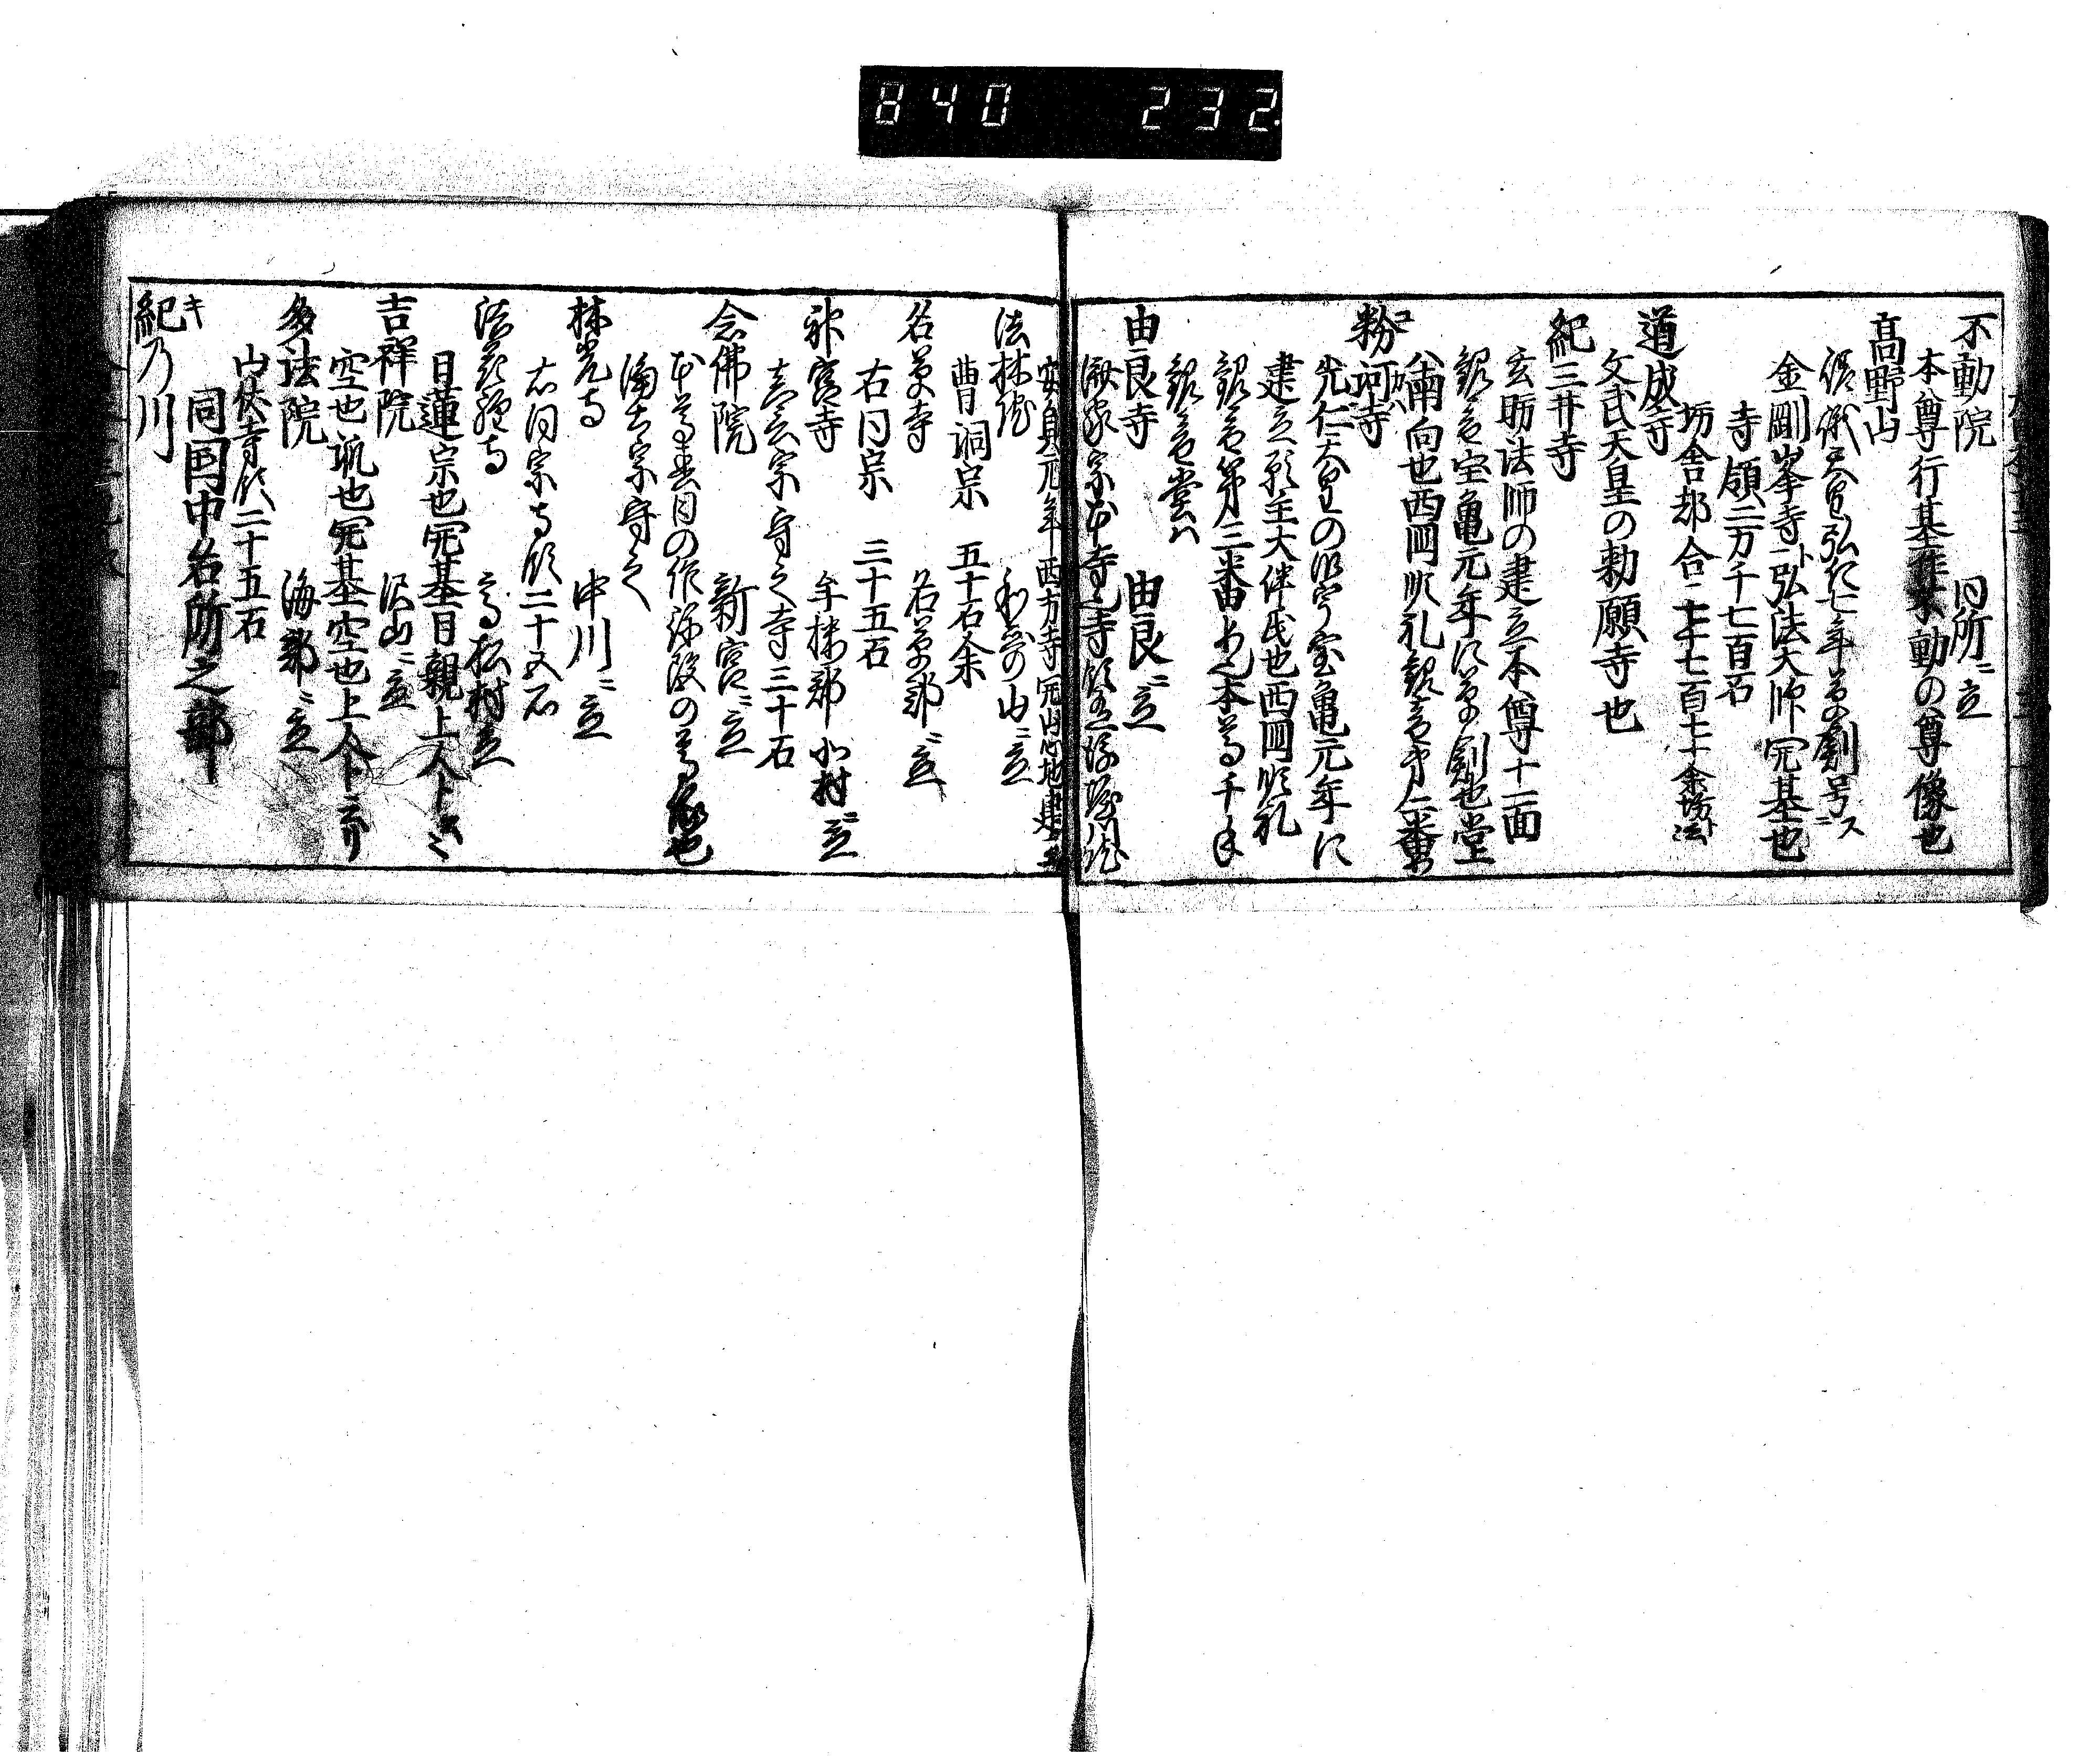 840 232
不動院 同所ニ立
本尊行基作不動の尊像也
高野山
嵯峨天皇弘仁七年草創号ス
金剛峯寺ト弘法大師開基也
寺領二万千七百石
坊舎都合七千七百七十余坊
道成寺
文武天皇の勅願寺也
紀三井寺
玄昉法師の建立本尊十一面
観音宝亀元年に草創也堂
南向也西国順礼観音第二番
粉河寺
光仁天皇の御宇宝亀元年に
建立願主大伴氏也西国順礼
観音第三番由本尊千手
観音堂ハ
由良寺 由良ニ立
禅家宗本寺也寺領
安貞元年西方寺開山心地建立
法林院 和哥の山ニ立
曹洞宗 五十石余
名草寺 名草郡ニ立
右同宗 三十五石
神宮寺 牟婁郡 村ニ立
真言宗守之寺三十石
念佛院 新宮ニ立
本尊春日の作弥陀の尊像也
浄土宗守之
林光寺 中川ニ立
右同宗寺領二十五石
高松村立
日蓮宗也開基日親上人ト云々
吉祥院 沢山ニ立
空也派也開基空也上人ト云リ
多法院 海部郡ニ立
山伏寺領二十五石
同国中名所之部
紀乃川